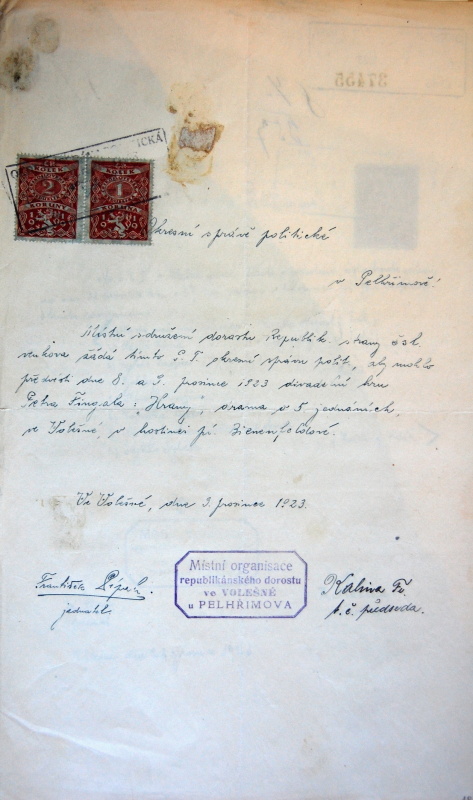 ICKÁ
KOLEK
2
KORUNY
KOLEK
1
KORUNA
37455
Okresní správě politické
v Pelhřimově!
Místní sdružení dorostu Republik. strany čsl.
venkova žádá tímto P. T. okresní správu polit., aby mohlo
předvésti dne 8. a 9. prosince 1923 divadelní hru
Petra Fingala: "Hrany", drama v 5 jednáních,
ve Volešné, v hostinci pí. Bienenfeldové.
Ve Volešné, dne 3. prosince 1923.
Místní organisace
republikánského dorostu
ve VOLEŠNÉ
u PELHŘIMOVA
František
jednatel.
Kalina Fr.
t. č. předseda.